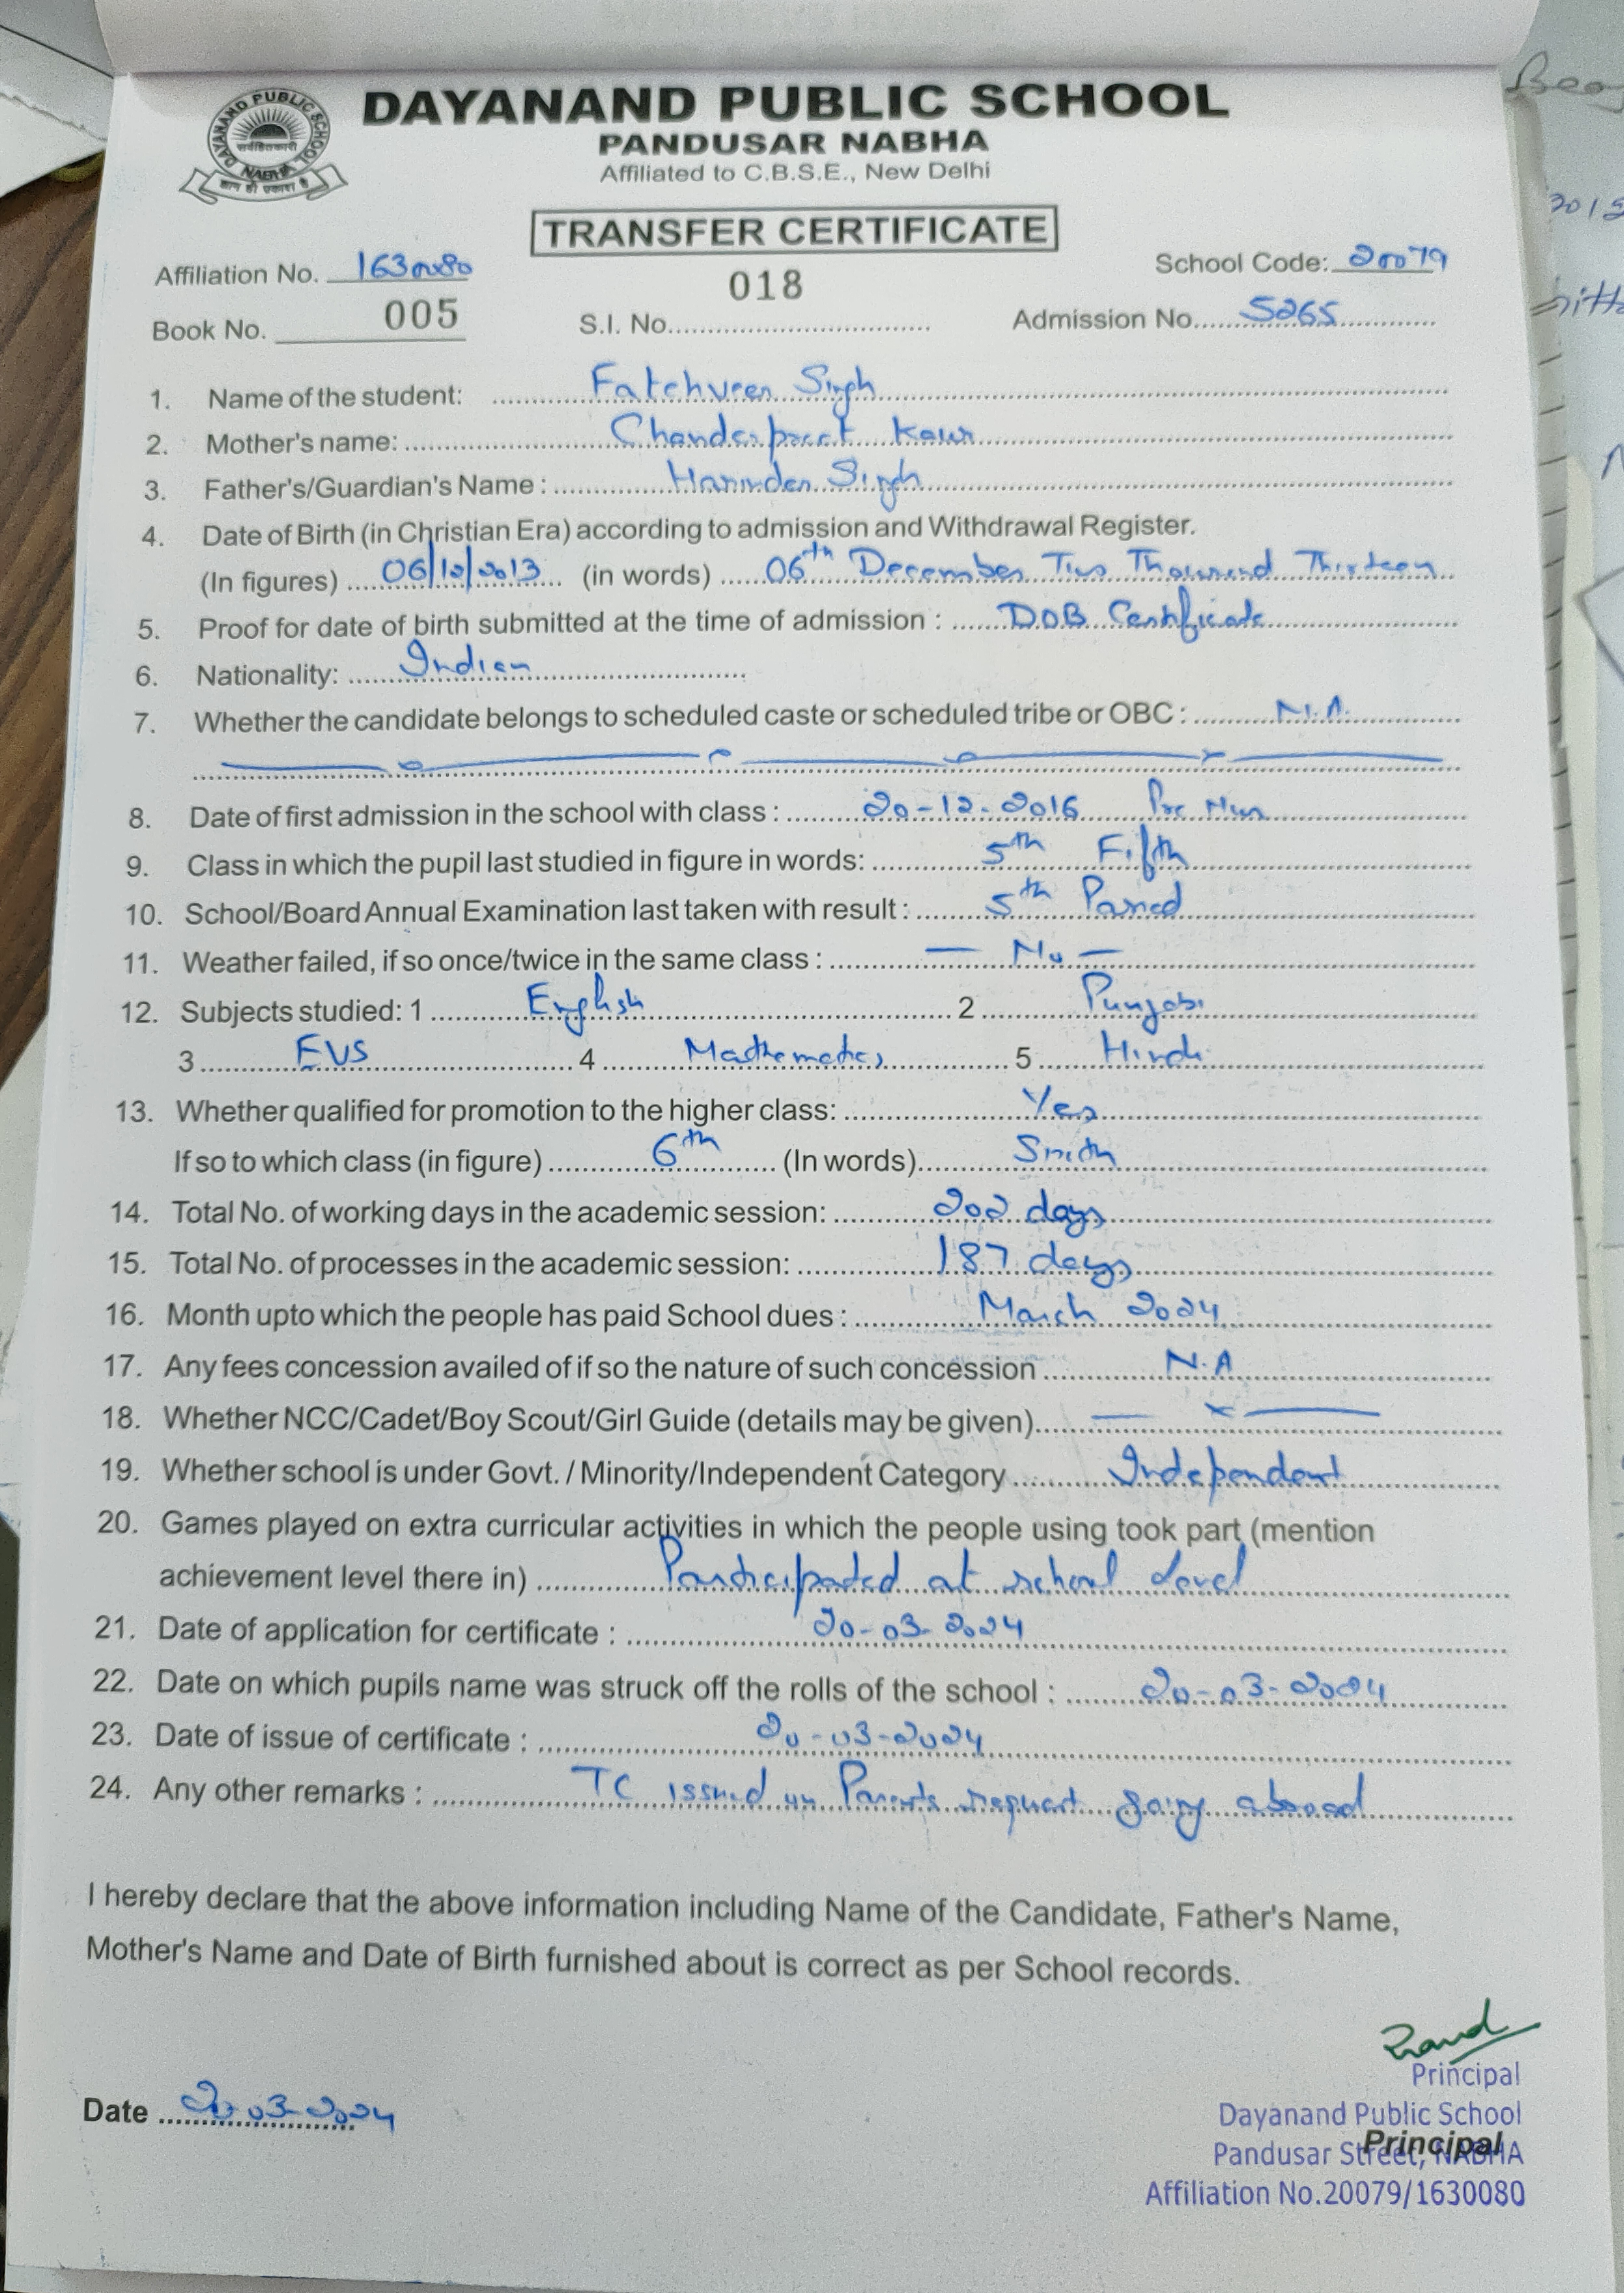 DAYANAND PUBLIC SCHOOL
PANDUSAR NABHA
Affiliated to C.B.S.E., New Delhi
DAYANAND PUBLIC SCHOOL
सर्वहितकारी
NABHA
TRANSFER CERTIFICATE
Affiliation No. 1630080 School Code: 20079
018
Book No. 005 S.I. No. Admission No. 5265
1. Name of the student: Fatehveer Singh
2. Mother's name: Chanderpreet Kaur
3. Father's/Guardian's Name : Harinder Singh
4. Date of Birth (in Christian Era) according to admission and Withdrawal Register.
(In figures) 06/12/2013 (in words) 06th December Two Thousand Thirteen
5. Proof for date of birth submitted at the time of admission : DOB Certificate
6. Nationality: Indian
7. Whether the candidate belongs to scheduled caste or scheduled tribe or OBC : N.A.
8. Date of first admission in the school with class : 20-12-2016 Pre Nur
9. Class in which the pupil last studied in figure in words: 5th Fifth
10. School/Board Annual Examination last taken with result : 5th Passed
11. Weather failed, if so once/twice in the same class : — No —
12. Subjects studied: 1 English 2 Punjabi
3 EVS 4 Mathematics 5 Hindi
13. Whether qualified for promotion to the higher class: Yes
If so to which class (in figure) 6th (In words)
14. Total No. of working days in the academic session: 202 days
15. Total No. of processes in the academic session: 187 days
16. Month upto which the people has paid School dues : March 2024
17. Any fees concession availed of if so the nature of such concession N.A
18. Whether NCC/Cadet/Boy Scout/Girl Guide (details may be given) — × —
19. Whether school is under Govt. / Minority/Independent Category Independent
20. Games played on extra curricular activities in which the people using took part (mention
achievement level there in) Participated at school level
21. Date of application for certificate : 20-03-2024
22. Date on which pupils name was struck off the rolls of the school : 20-03-2024
23. Date of issue of certificate : 20-03-2024
24. Any other remarks : TC issued on Parents request going abroad
I hereby declare that the above information including Name of the Candidate, Father's Name,
Mother's Name and Date of Birth furnished about is correct as per School records.
Principal
Date 20-03-2024 Dayanand Public School
Principal
Pandusar Street, NABHA
Affiliation No.20079/1630080